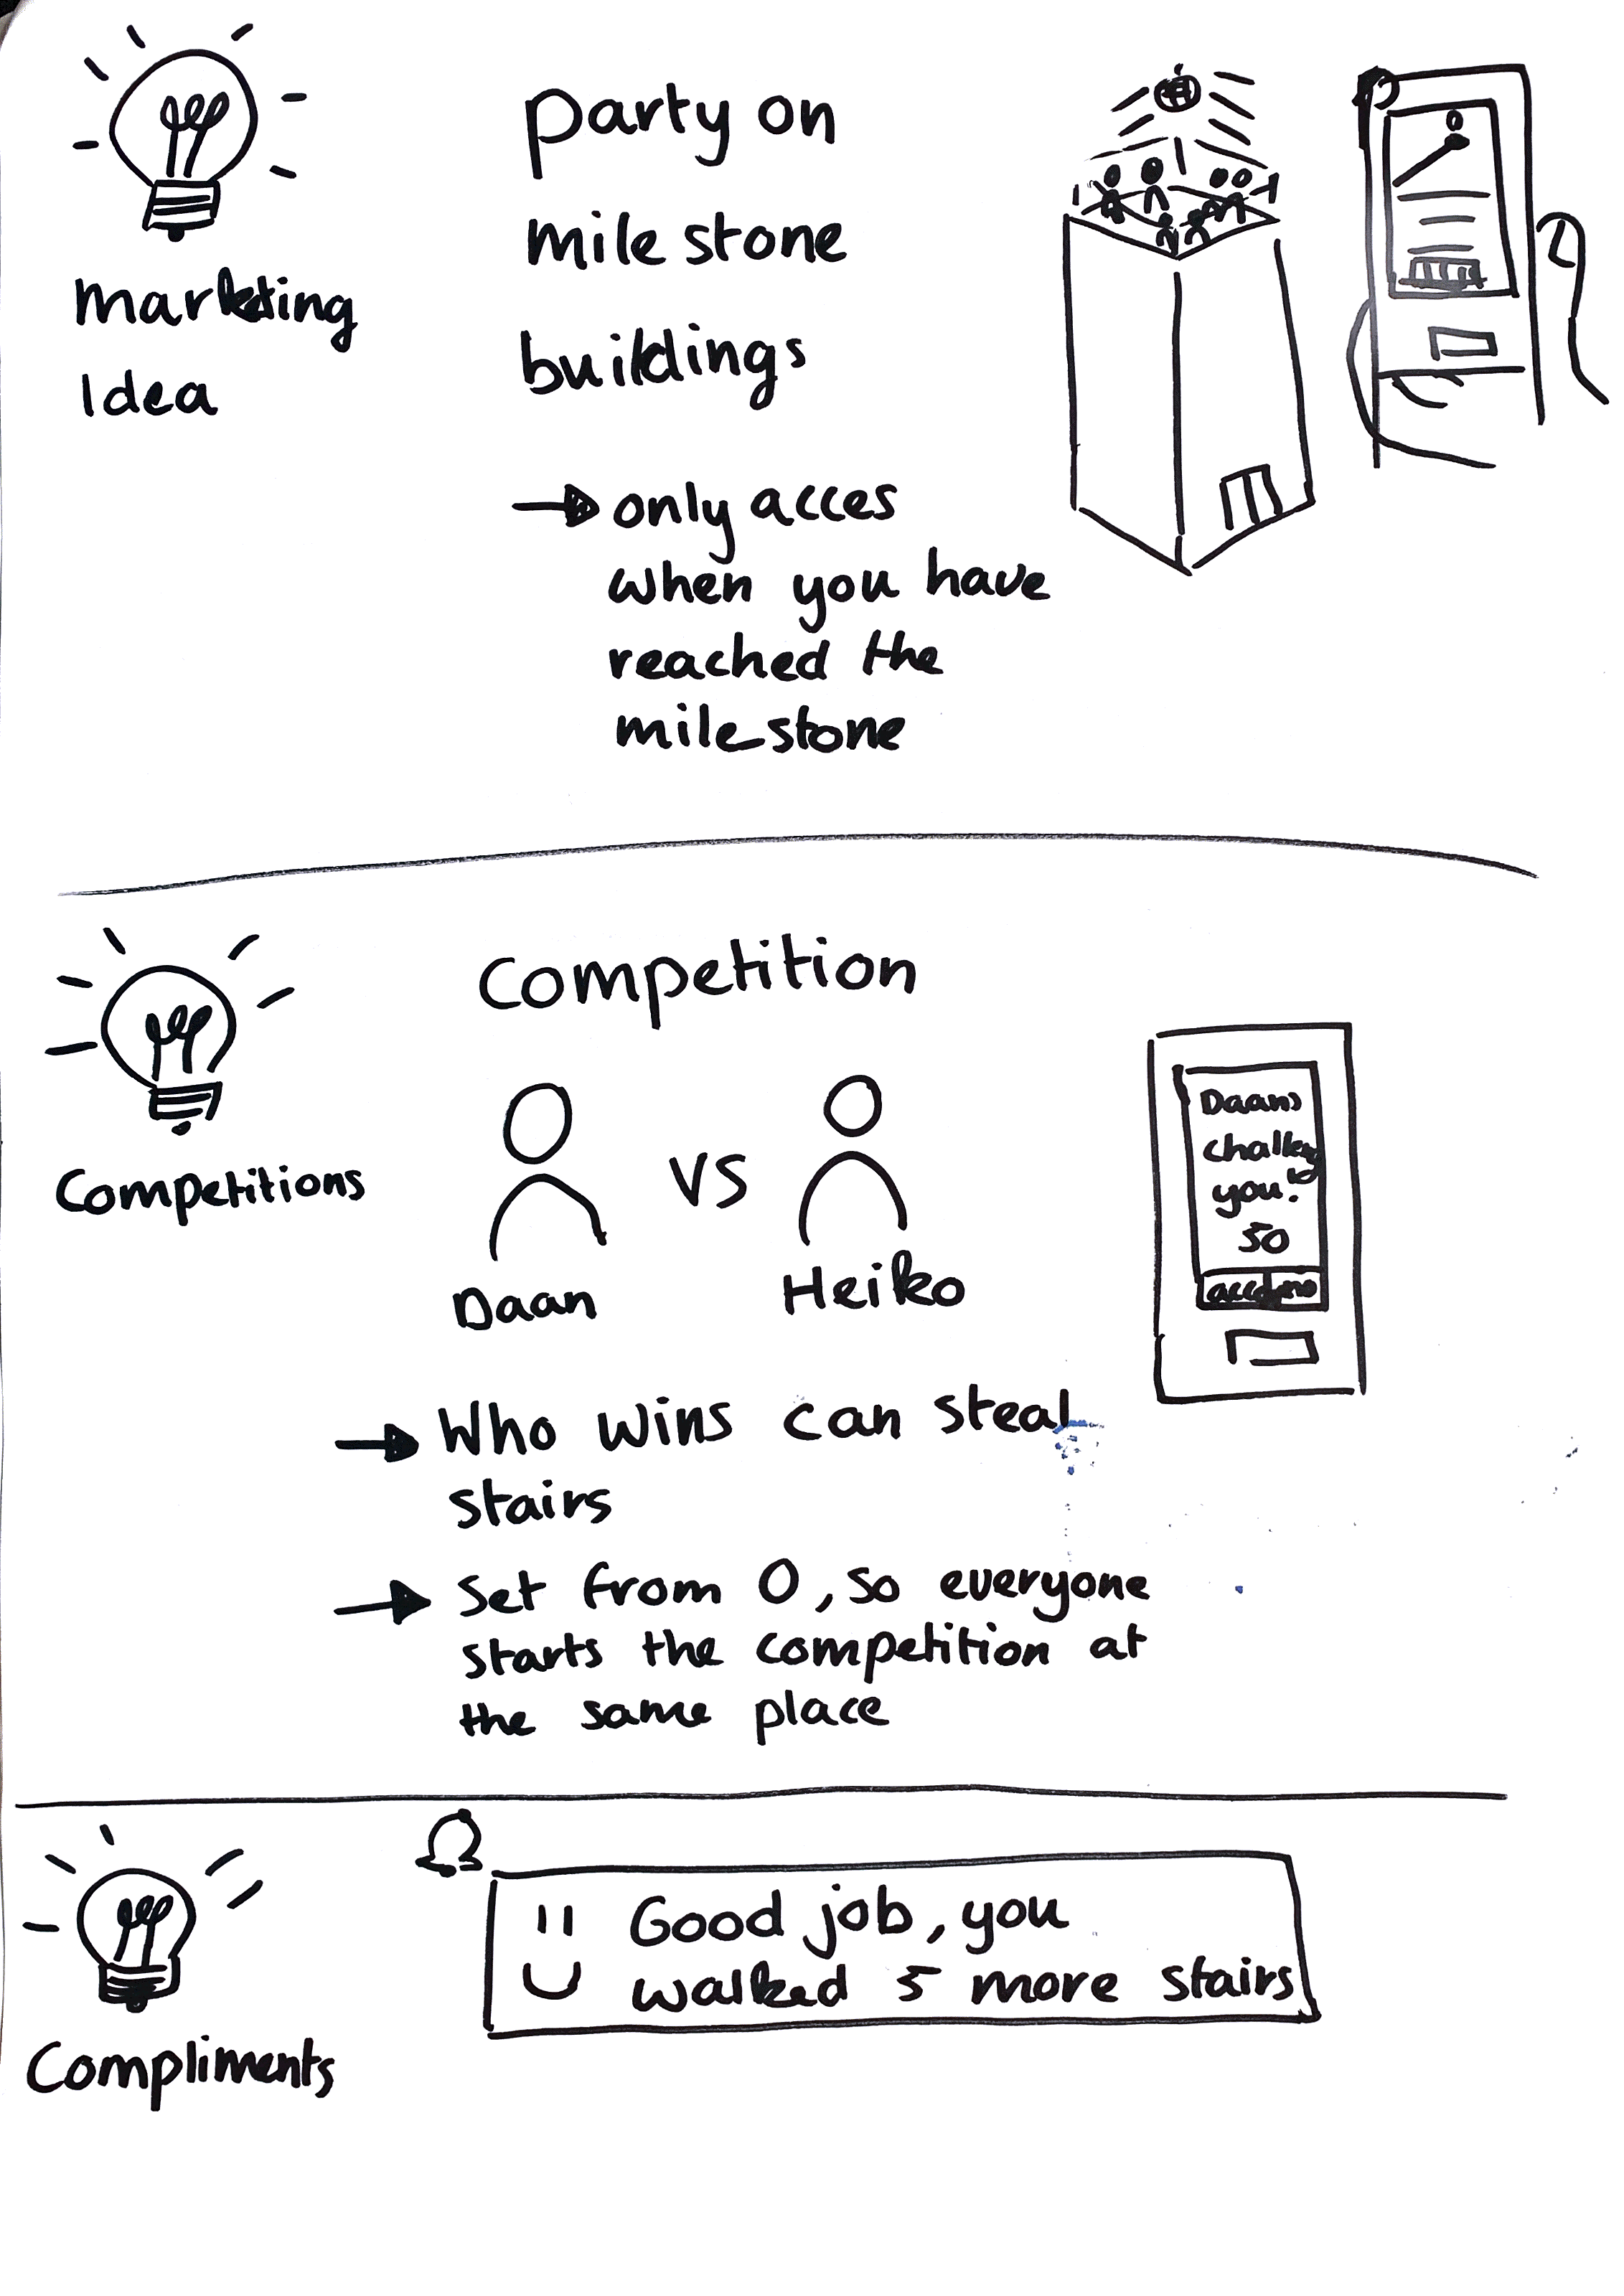 marketing
Idea
party on
mile stone
buildings
only acces
when you have
reached the
milestone
Competitions
Competition
VS
Daan
Heiko
Daan
you!
50
Who wins can steal
stairs
Set from 0, so everyone
starts the competition at
the same place
Compliments
Good job, you
walked 5 more stairs